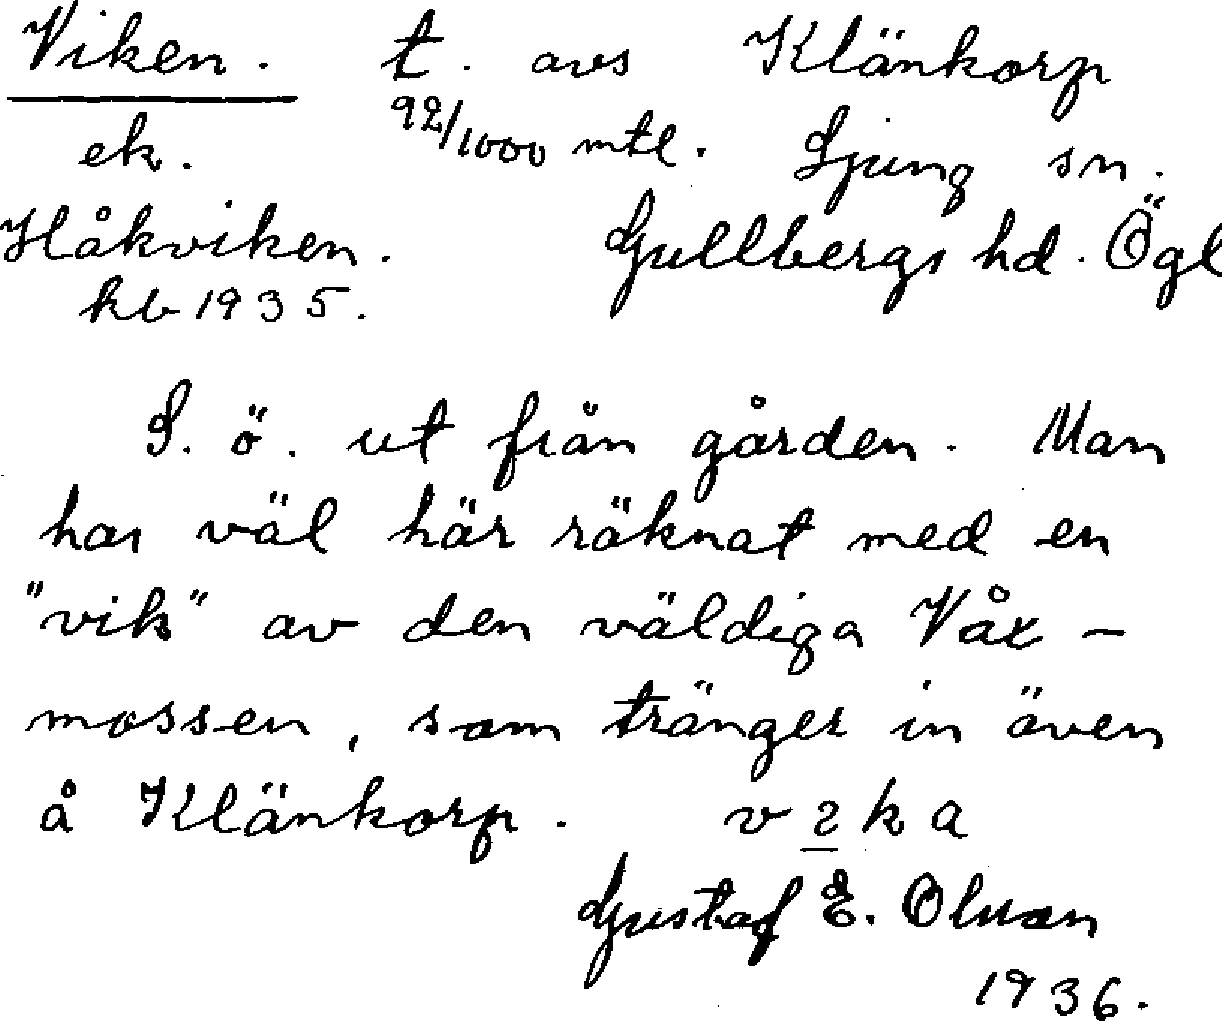 Viken. t. avs Klänkorp
ek. 92/1000 mtl. Ljung sn.
Håkviken. Gullbergs hd. Ögl
kb 1935.
S. ö. ut från gården. Man
har väl här räknat med en
"vik" av den väldiga Våx-
mossen, som tränger in även
å Klänkorp. v 2 k a
Gustaf E. Olsson
1936.